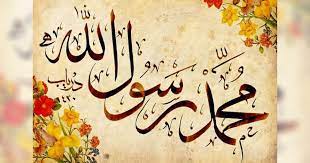 محمّد رسول اللّه